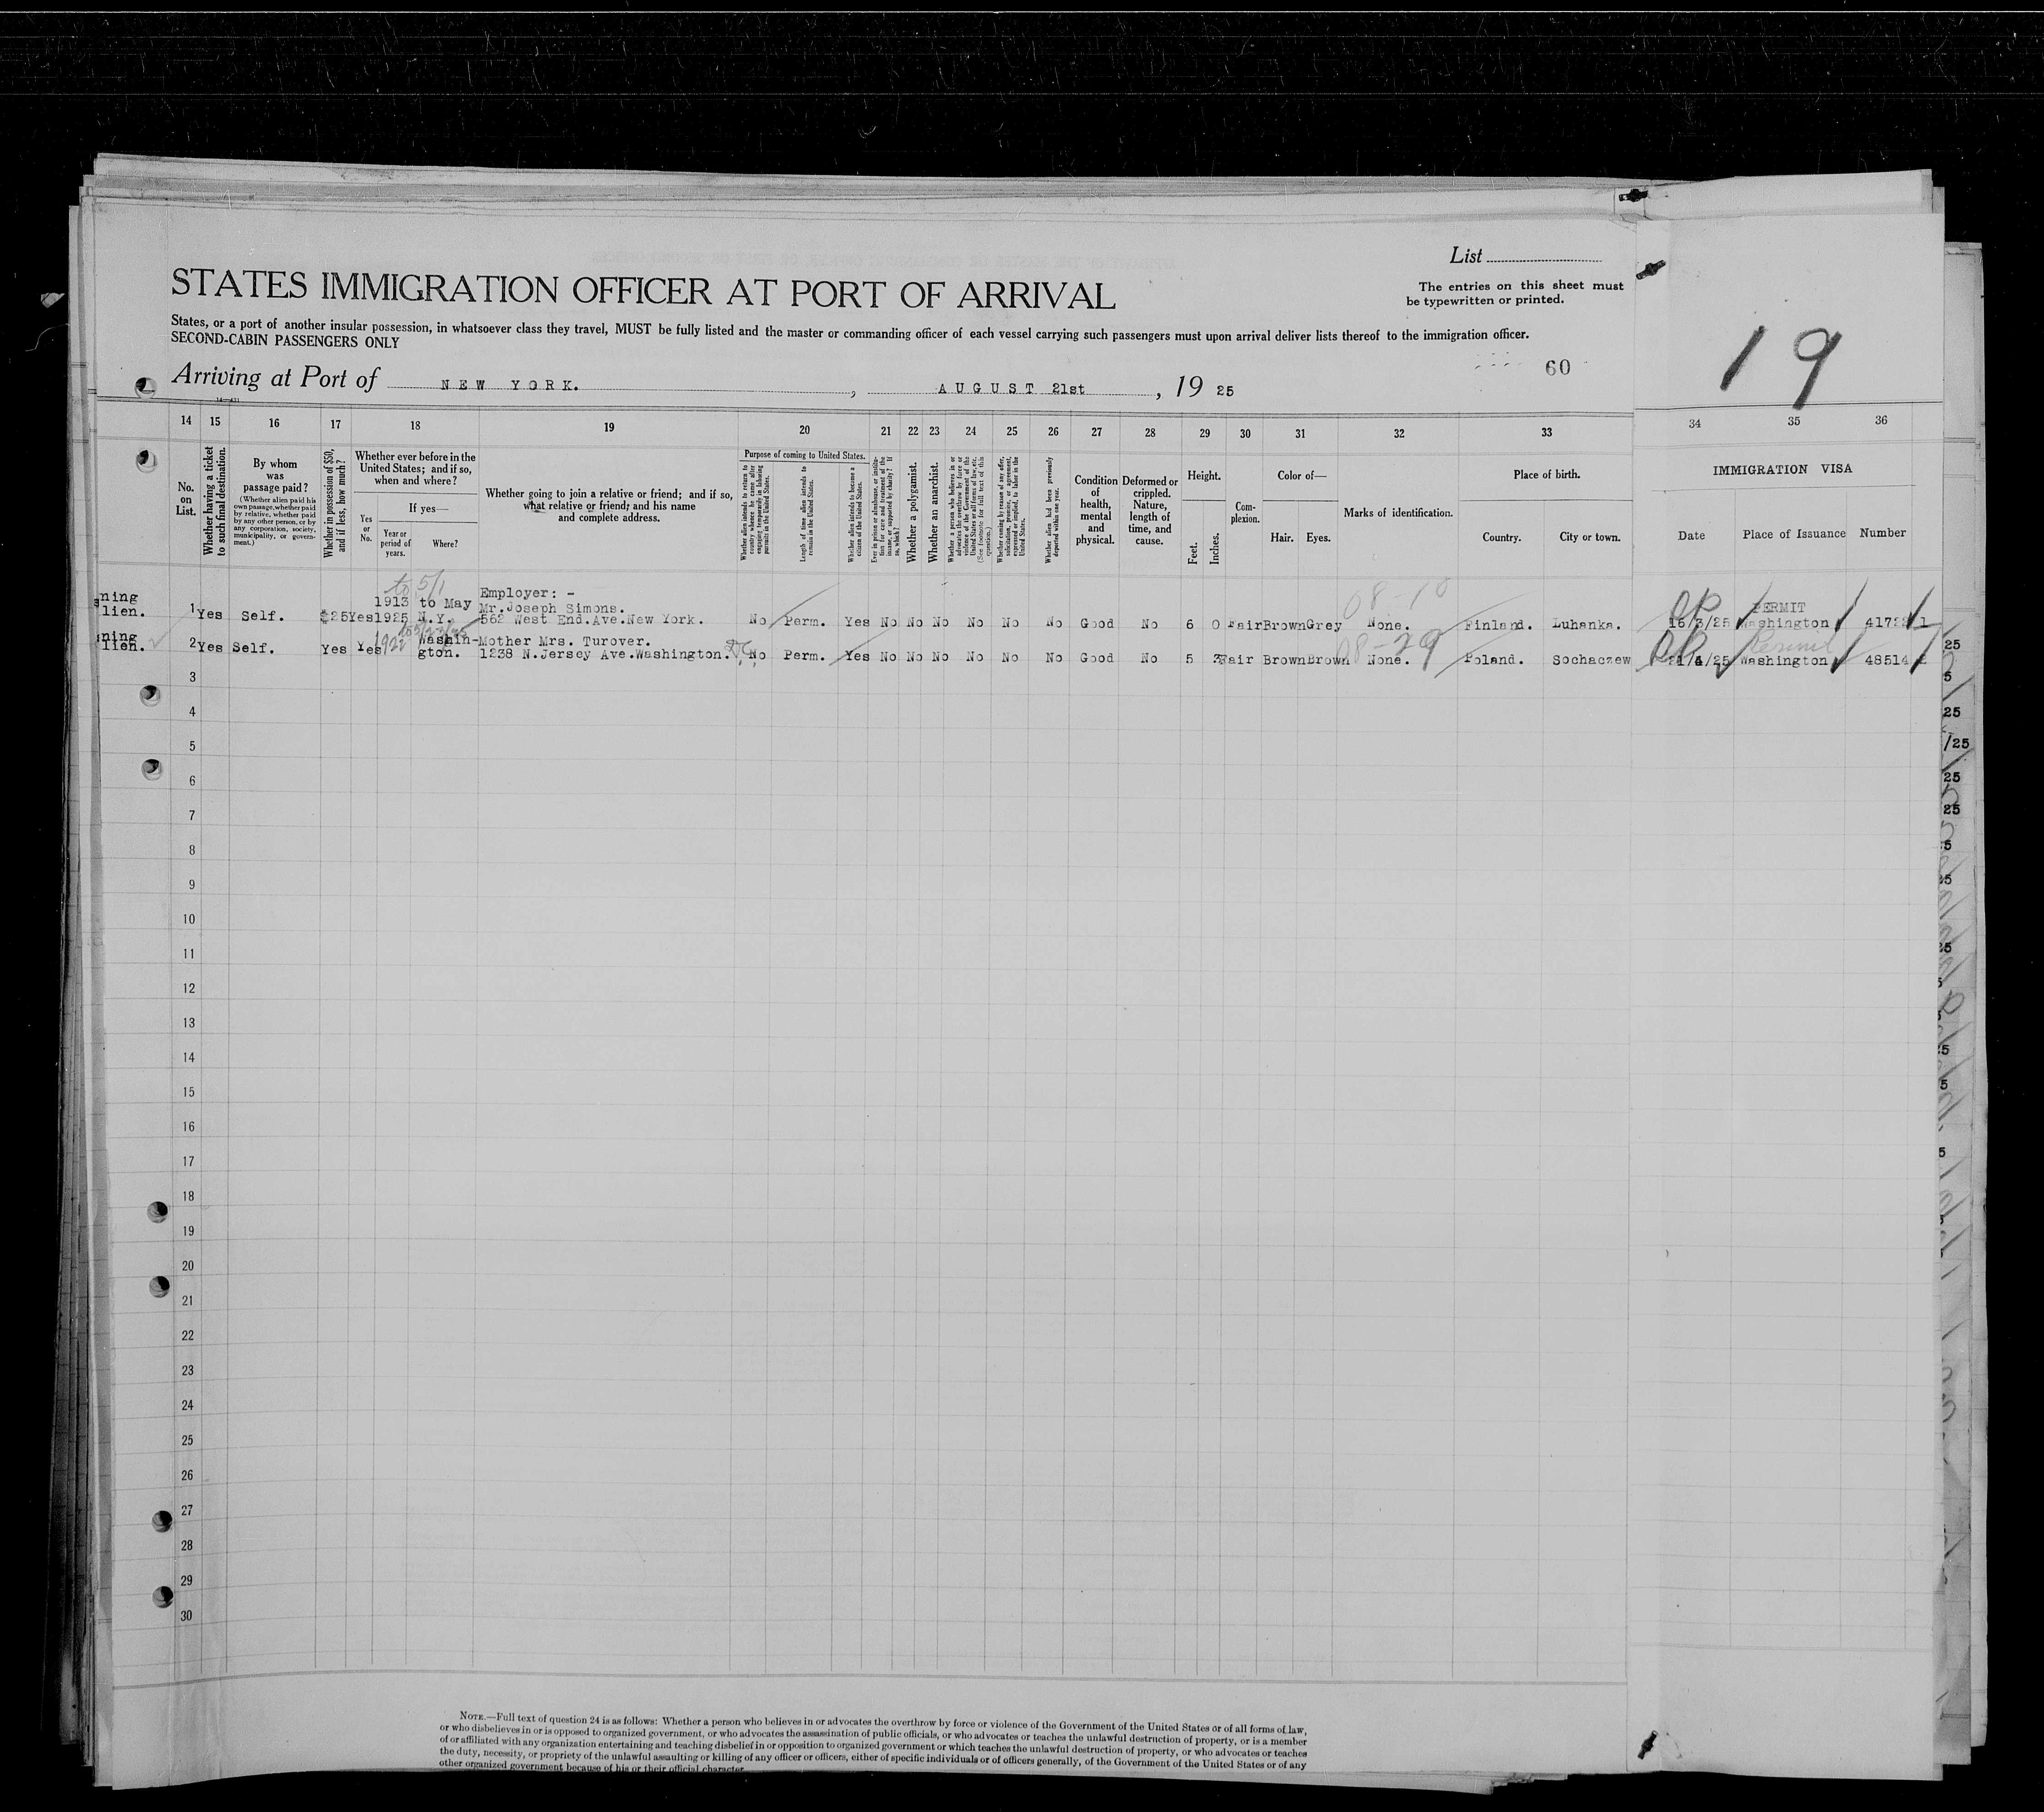 List
The entries on this sheet must
be typewritten or printed.
STATES IMMIGRATION OFFICER AT PORT OF ARRIVAL
States, or a port of another insular possession, in whatsoever class they travel, MUST be fully listed and the master or commanding officer of each vessel carrying such passengers must upon arrival deliver lists thereof to the immigration officer.
SECOND-CABIN PASSENGERS ONLY
19
60
Arriving at Port of NEW YORK. , AUGUST 21st , 19 25
14 15 16 17 18 19 20 21 22 23 24 25 26 27 28 29 30 31 32 33 34 35 36
No. on List.
Whether having a ticket to such final destination.
By whom was passage paid?
(Whether alien paid his own passage, whether paid by relative, whether paid by any other person, or by any corporation, society, municipality, or government.)
Whether in possession of $50, and if less, how much?
Whether ever before in the United States; and if so, when and where?
Yes or No.
If yes—
Year or period of years.
Where?
Whether going to join a relative or friend; and if so, what relative or friend; and his name and complete address.
Purpose of coming to United States.
Whether alien intends to return to country whence he came after engaging temporarily in laboring pursuits in the United States.
Length of time alien intends to remain in the United States.
Whether alien intends to become a citizen of the United States.
Ever in prison or almshouse, or institution for care and treatment of the insane, or supported by charity? If so, which?
Whether a polygamist.
Whether an anarchist.
Whether a person who believes in or advocates the overthrow by force or violence of the Government of the United States or all forms of law, etc. (See footnote for full text of this question.)
Whether coming by reason of any offer, solicitation, promise, or agreement, expressed or implied, to labor in the United States.
Whether alien had been previously deported within one year.
Condition of health, mental and physical.
Deformed or crippled. Nature, length of time, and cause.
Height.
Feet.
Inches.
Complexion.
Color of—
Hair. Eyes.
Marks of identification.
Place of birth.
Country. City or town.
IMMIGRATION VISA
Date Place of Issuance Number
to 5/1
ning 1913 to May Employer: - 08-10 PERMIT
lien. 1 Yes Self. $25 Yes 1925 N.Y. Mr. Joseph Simons.
562 West End.Ave.New York. No Perm. Yes No No No No No No Good No 6 0 Fair Brown Grey None. Finland. Luhanka. 15/3/25 Washington 1
ning Washin- Mother Mrs. Turover. 08-29 Permit
lien. 2 Yes Self. Yes Yes 1922 gton. 1238 N.Jersey Ave.Washington. D.C. No Perm. Yes No No No No No No Good No 5 3 Fair Brown Brown None. Poland. Sochaczew Washington 48514 2
3
4
5
6
7
8
9
10
11
12
13
14
15
16
17
18
19
20
21
22
23
24
25
26
27
28
29
30
NOTE.—Full text of question 24 is as follows: Whether a person who believes in or advocates the overthrow by force or violence of the Government of the United States or of all forms of law,
or who disbelieves in or is opposed to organized government, or who advocates the assassination of public officials, or who advocates or teaches the unlawful destruction of property, or is a member
of or affiliated with any organization entertaining and teaching disbelief in or opposition to organized government or which teaches the unlawful destruction of property, or who advocates or teaches
the duty, necessity, or propriety of the unlawful assaulting or killing of any officer or officers, either of specific individuals or of officers generally, of the Government of the United States or of any
other organized government because of his or their official character